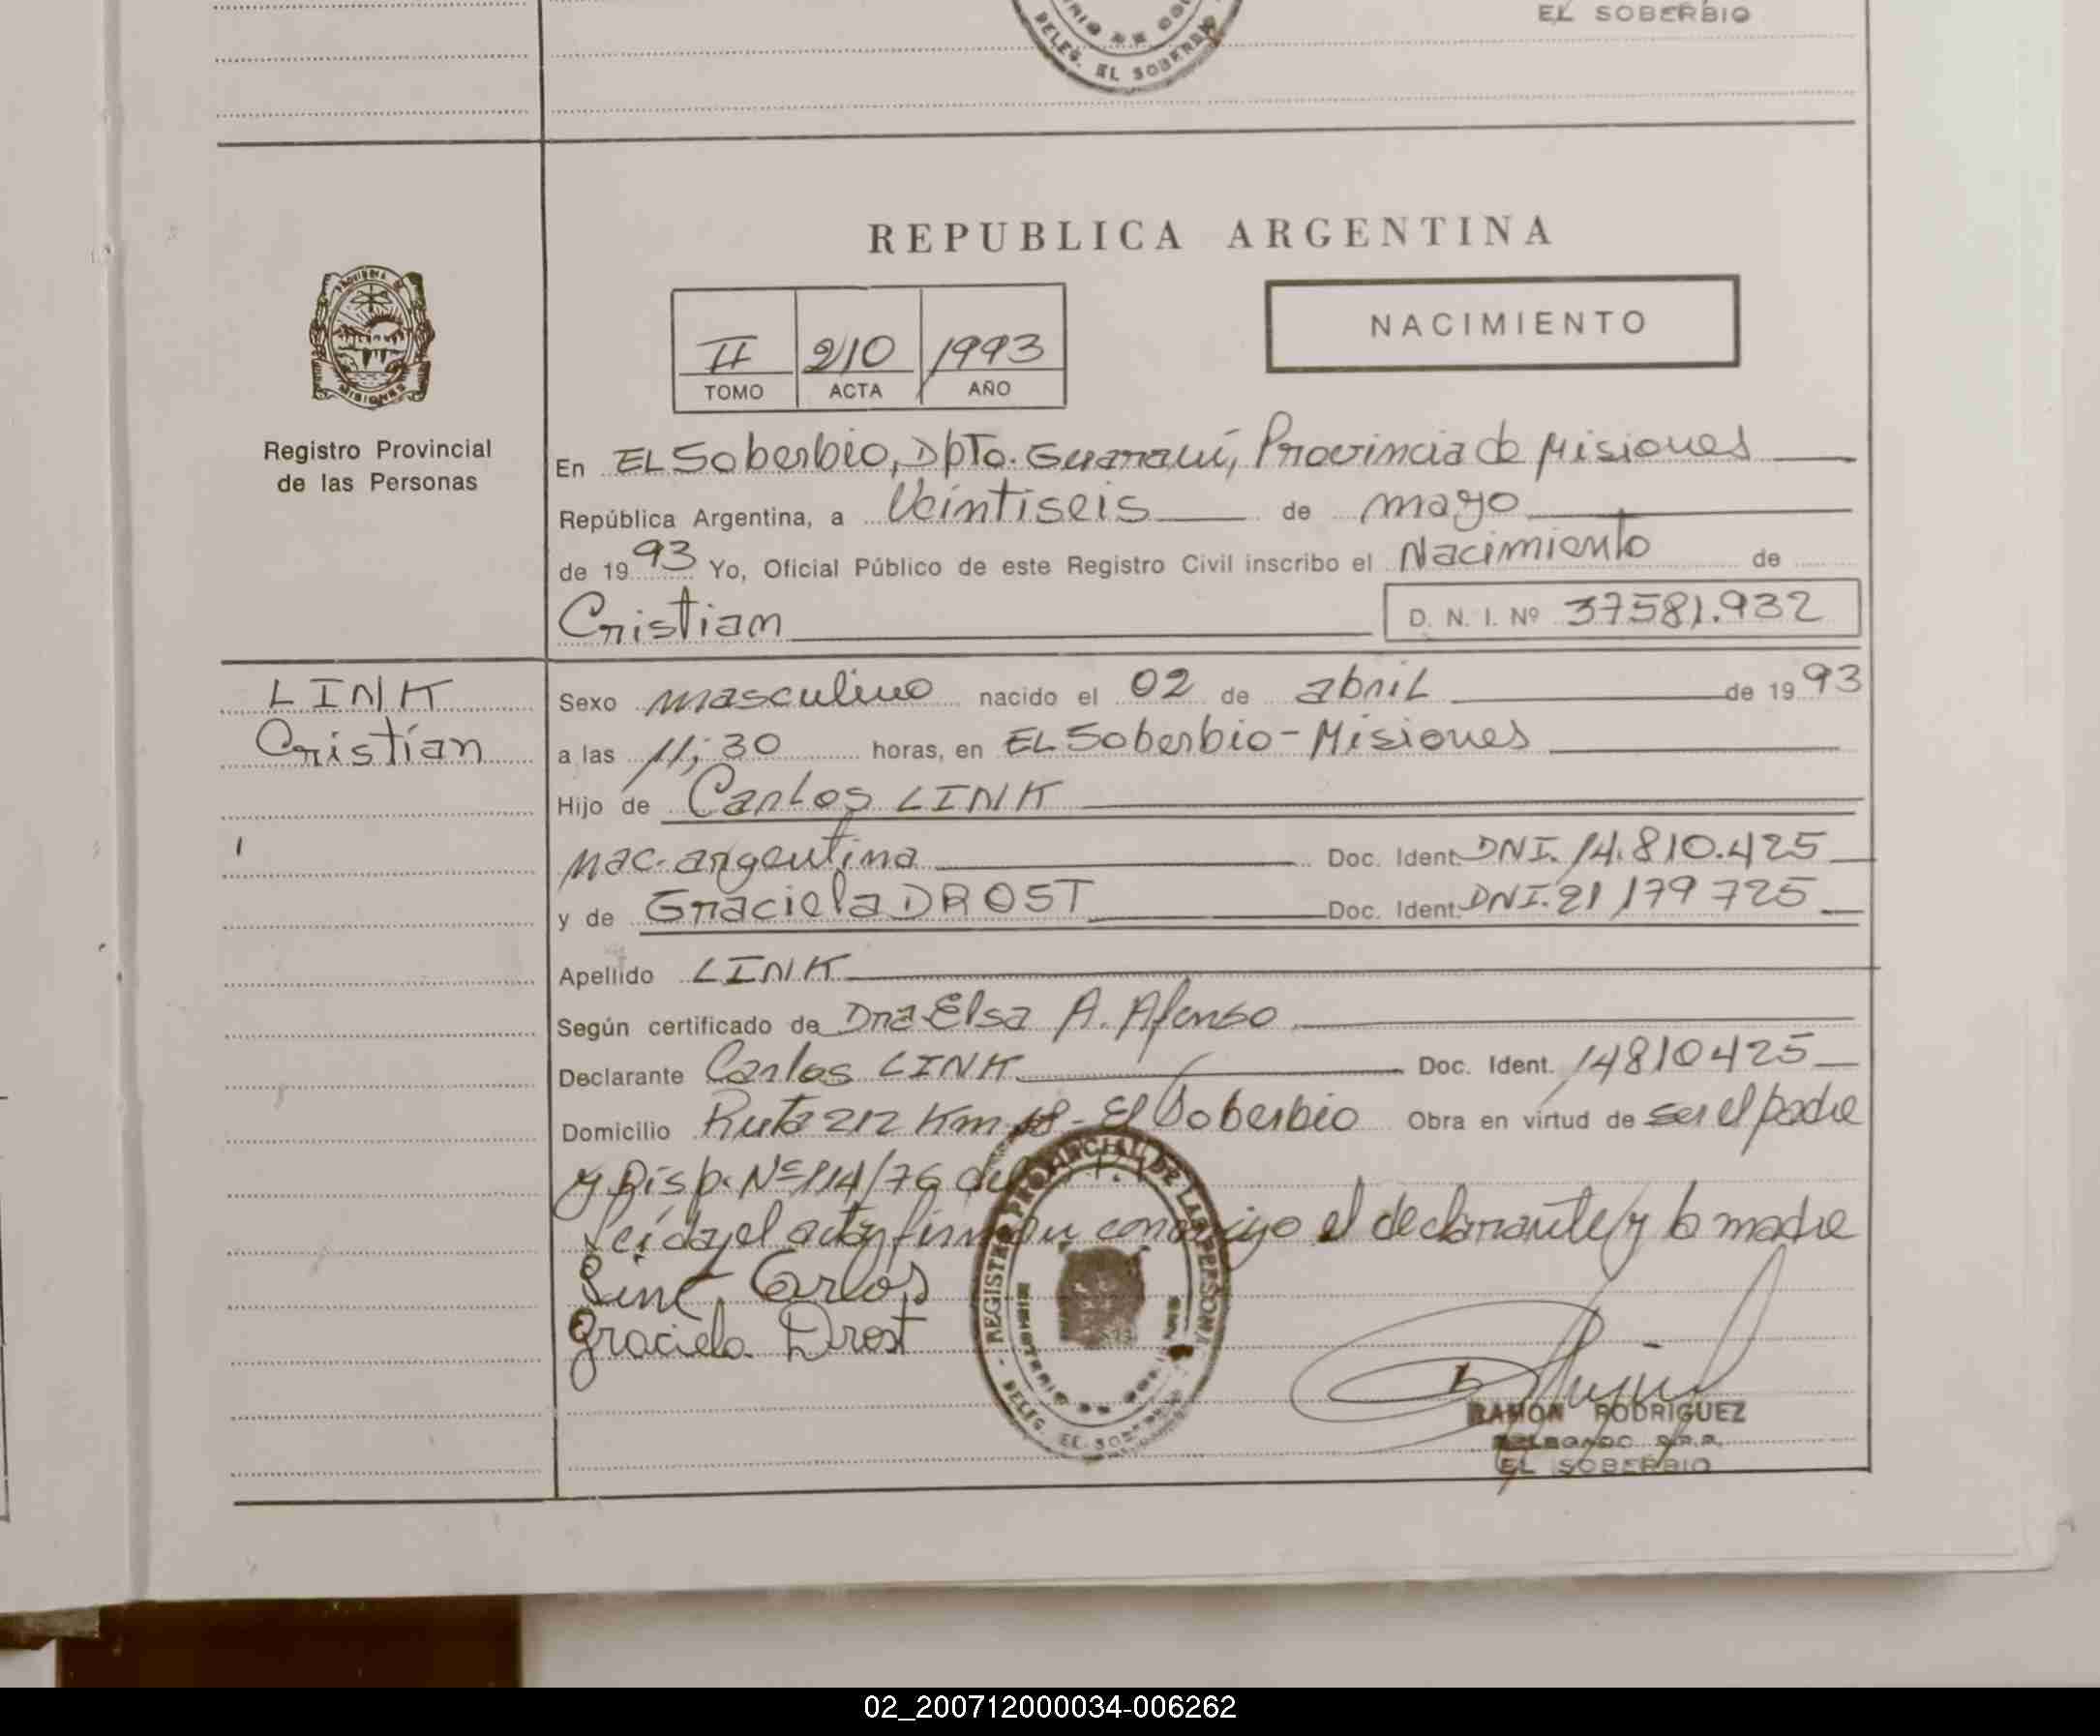 EL SOBERBIO
DELEG. EL SOBERBIO
REPUBLICA ARGENTINA
NACIMIENTO
II 210 1993
TOMO ACTA AÑO
PROVINCIA DE MISIONES
Registro Provincial
de las Personas
En EL Soberbio, Dpto. Guaraní, Provincia de Misiones
República Argentina, a Veintiseis de mayo
de 1993 Yo, Oficial Público de este Registro Civil inscribo el Nacimiento de
Cristian D. N. I. Nº 37581.932
LINK
Cristian
Sexo masculino nacido el 02 de abril de 1993
a las 11,30 horas, en EL Soberbio - Misiones
Hijo de Carlos LINK
nac. argentina Doc. Ident. DNI. 14.810.425
y de Graciela DROST Doc. Ident. DNI. 21179725
Apellido LINK
Según certificado de Dra Elsa A. Afonso
Declarante Carlos LINK Doc. Ident. 14810425
Domicilio Ruta 212 Km - El Soberbio Obra en virtud de ser el padre
y Disp. Nº 114/76 del
Leída el acta, firman conmigo el declarante y la madre
Link, Carlos
Graciela Drost
REGISTRO PROVINCIAL DE LAS PERSONAS
DELEG. EL SOBERBIO
RAMON RODRIGUEZ
DELEGADO R.P.P.
EL SOBERBIO
02_200712000034-006262